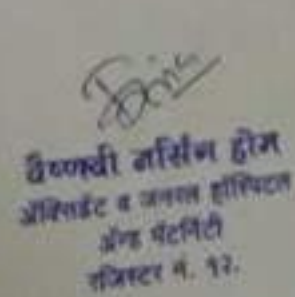 वैष्णवी नर्सिंग होम
ॲक्सिडेंट व जनरल हॉस्पिटल
ॲण्ड मॅटर्निटी
रजिस्टर नं. १२.